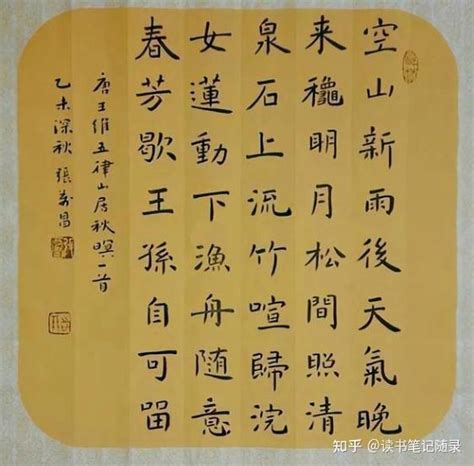 空山新雨後天氣晚
来穐明月松間照清
泉石上流竹喧歸浣
女蓮動下漁舟随意
春芳歇王孫自可留
唐王维五律山居秋暝一首
乙未深秋張昌
知乎 @读书笔记随录